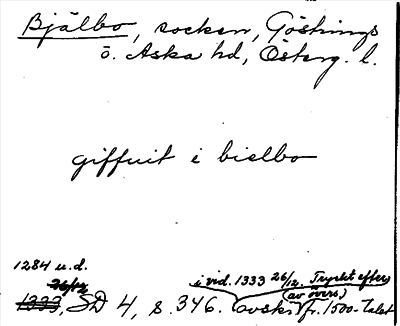 Bjälbo, socken, Göstrings
ö. Aska hd, Österg. l.
giffuit i bielbo
1284 u.d.
26/12 i vid. 1333 26/12. Tryckt efter
(av övers)
1333, SD 4, s. 346. avskr. fr. 1500-talet